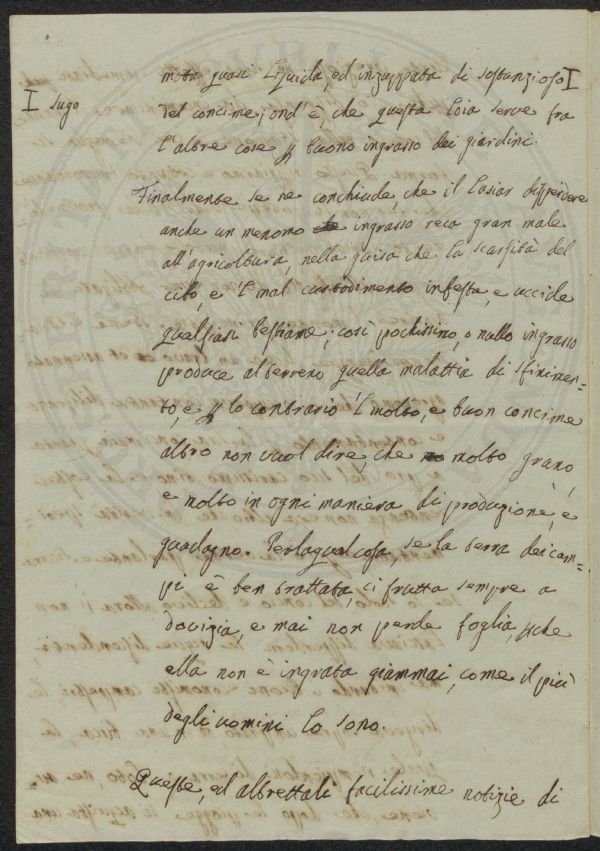 mota quasi liquida, ed inzuppata di sostanzioso I
I sugo
del concime; ond'è, che questa loia serve fra
l'altre cose p buono ingrasso dei giardini.
Finalmente se ne conchiude, che il lasiar disperdere
anche un menomo ingrasso reca gran male
all'agricoltura, nella guisa che la scarsità del
cibo, e 'l mal custodimento infesta, e uccide
qualsiasi bestiame; così pochissimo, o nullo ingrasso
produce al terreno quella malattia di sfinimen=
to, e p lo contrario 'l molto, e buon concime
altro non vuol dire, che molto grano,
e molto in ogni maniera di produzione, e
guadagno. Perlaqualcosa, se la terra dei cam=
pi è ben trattata, ci frutta sempre a
dovizia, e mai non perde foglia, pche
ella non è ingrata giammai, come il più
degli uomini lo sono.
Queste, ed altrettali facilissime notizie di